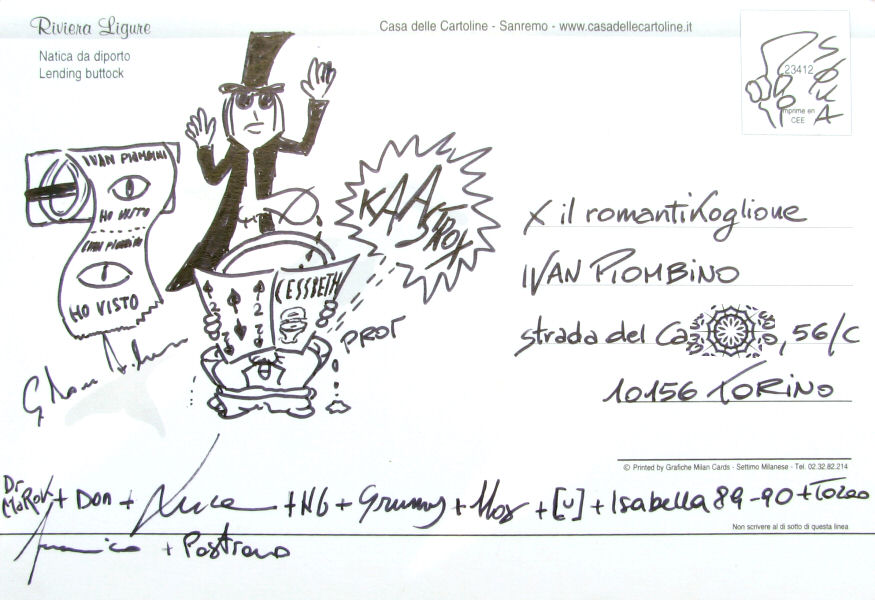 Riviera Ligure
Natica da diporto
Lending buttock
Casa delle Cartoline - Sanremo - www.casadellecartoline.it
23412
SOKA
Imprime en
CEE
IVAN PIOMBINI
HO VISTO
IVAN PIOMBINI
HO VISTO
KAA
STROX
CESSBETH
2
2
PROT
X il romantikoglione
IVAN PIOMBINO
strada del Ca o, 56/c
10156 TORINO
© Printed by Grafiche Milan Cards - Settimo Milanese - Tel. 02.32.82.214
Dr
MaRok + Don + Luca + N6 + Grumy + Mox + [U] + Isabella 89-90 + Tozeo
Non scrivere al di sotto di questa linea
+ Postrano